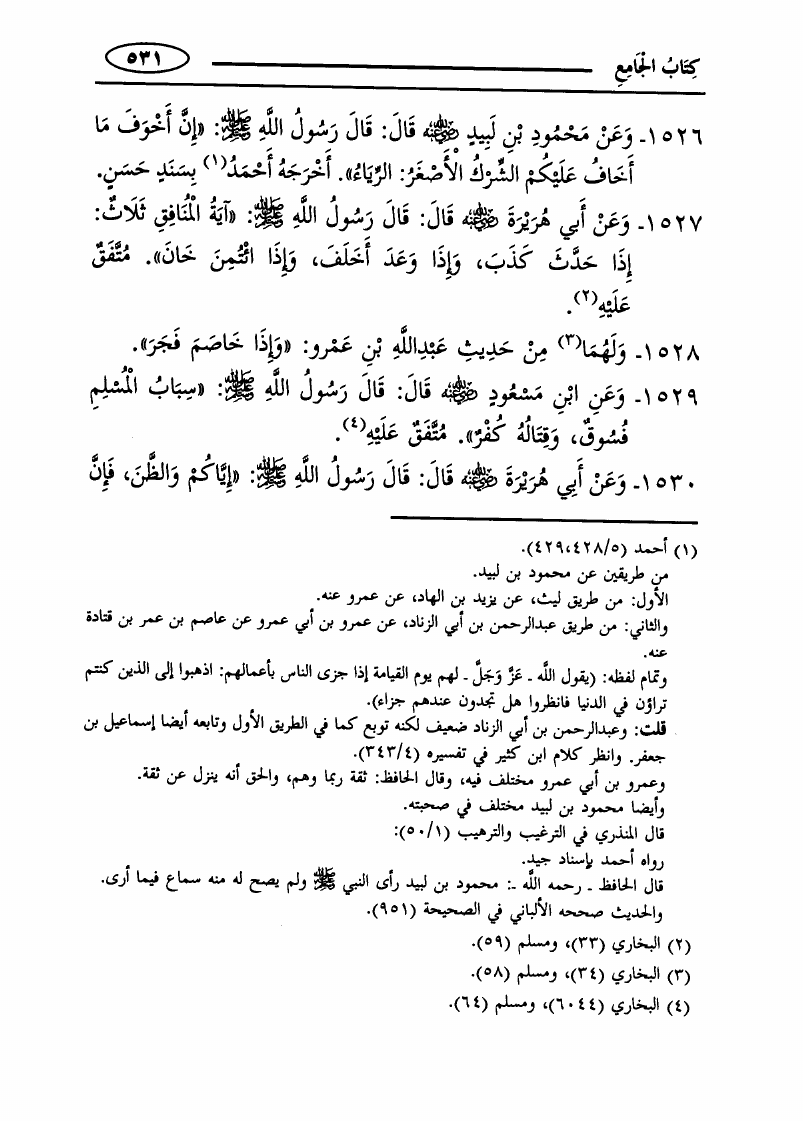 كِتَابُ الْجَامِعِ ٥٣١
١٥٢٦ـ وَعَنْ مَحْمُودِ بْنِ لَبِيدٍ ﵁ قَالَ: قَالَ رَسُولُ اللَّهِ ﷺ: «إِنَّ أَخْوَفَ مَا
أَخَافُ عَلَيْكُمْ الشِّرْكُ الْأَصْغَرُ: الرِّيَاءُ». أَخْرَجَهُ أَحْمَدُ(١) بِسَنَدٍ حَسَنٍ.
١٥٢٧ـ وَعَنْ أَبِي هُرَيْرَةَ ﵁ قَالَ: قَالَ رَسُولُ اللَّهِ ﷺ: «آيَةُ الْمُنَافِقِ ثَلَاثٌ:
إِذَا حَدَّثَ كَذَبَ، وَإِذَا وَعَدَ أَخْلَفَ، وَإِذَا ائْتُمِنَ خَانَ». مُتَّفَقٌ
عَلَيْهِ(٢).
١٥٢٨ـ وَلَهُمَا(٣) مِنْ حَدِيثِ عَبْدِاللَّهِ بْنِ عَمْرو: «وَإِذَا خَاصَمَ فَجَرَ».
١٥٢٩ـ وَعَنِ ابْنِ مَسْعُودٍ ﵁ قَالَ: قَالَ رَسُولُ اللَّهِ ﷺ: «سِبَابُ الْمُسْلِمِ
فُسُوقٌ، وَقِتَالُهُ كُفْرٌ». مُتَّفَقٌ عَلَيْهِ(٤).
١٥٣٠ـ وَعَنْ أَبِي هُرَيْرَةَ ﵁ قَالَ: قَالَ رَسُولُ اللَّهِ ﷺ: «إِيَّاكُمْ وَالظَّنَ، فَإِنَّ
(١) أحمد (٤٢٩،٤٢٨/٥).
من طريقين عن محمود بن لبيد.
الأول: من طريق ليث، عن يزيد بن الهاد، عن عمرو عنه.
والثاني: من طريق عبدالرحمن بن أبي الزناد، عن عمرو بن أبي عمرو عن عاصم بن عمر بن قتادة
عنه.
وتمام لفظه: (يقول اللَّه ـ عَزَّ وَجَلَّ ـ لهم يوم القيامة إذا جزى الناس بأعمالهم: اذهبوا إلى الذين كنتم
تراؤن في الدنيا فانظروا هل تجدون عندهم جزاء).
قلت: وعبدالرحمن بن أبي الزناد ضعيف لكنه توبع كما في الطريق الأول وتابعه أيضا إسماعيل بن
جعفر. وانظر كلام ابن كثير في تفسيره (٣٤٣/٤).
وعمرو بن أبي عمرو مختلف فيه، وقال الحافظ: ثقة ربما وهم، والحق أنه ينزل عن ثقة.
وأيضا محمود بن لبيد مختلف في صحبته.
قال المنذري في الترغيب والترهيب (٥٠/١):
رواه أحمد بإسناد جيد.
قال الحافظ ـ رحمه اللَّه ـ: محمود بن لبيد رأى النبي ﷺ ولم يصح له منه سماع فيما أرى.
والحديث صححه الألباني في الصحيحة (٩٥١).
(٢) البخاري (٣٣)، ومسلم (٥٩).
(٣) البخاري (٣٤)، ومسلم (٥٨).
(٤) البخاري (٦٠٤٤)، ومسلم (٦٤).